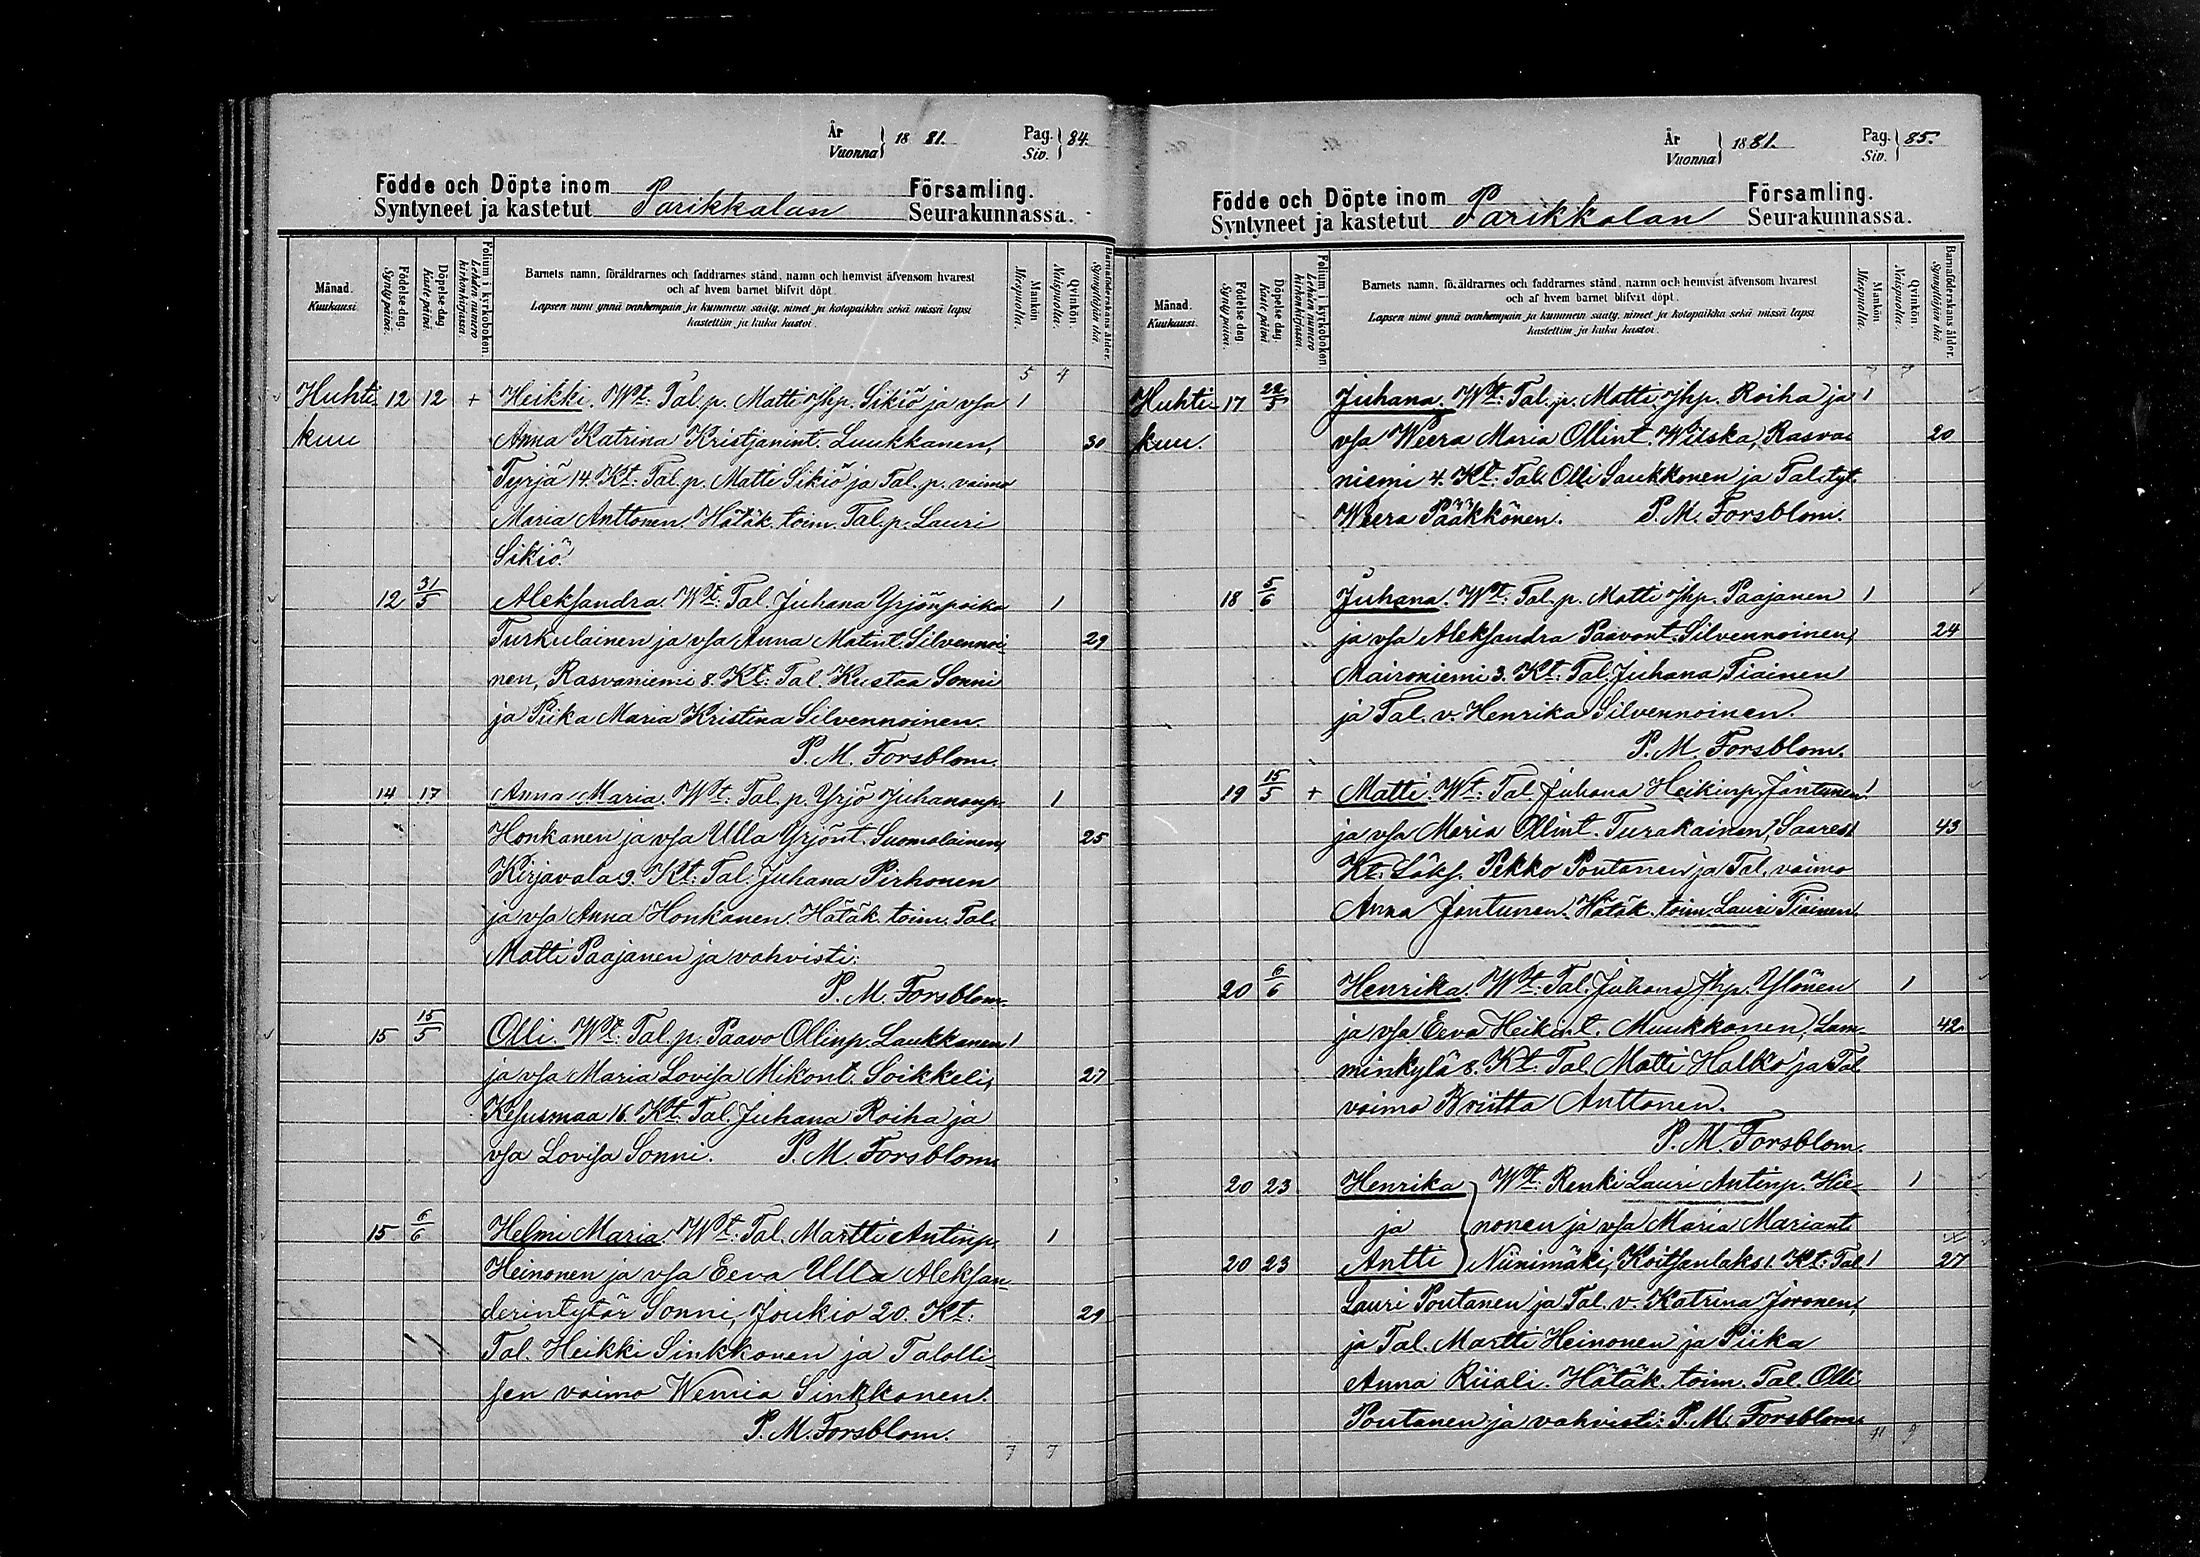 År
Vuonna } 18 81.
Pag.
Siv. } 84.
Födde och Döpte inom
Syntyneet ja kastetut Parikkalan
Församling.
Seurakunnassa.
Månad.
Kuukausi.
Födelse dag.
Synty päivä.
Döpelse dag
Kaste päivä.
Folium i kyrkoboken
Lehden numero kirkonkirjassa.
Barnets namn, föräldrarnes och faddrarnes stånd, namn och hemvist äfvensom hvarest
och af hvem barnet blifvit döpt.
Lapsen nimi ynnä vanhempain ja kummein sääty, nimet ja kotopaikka sekä missä lapsi
kastettiin ja kuka kastoi.
Mankön
Miespuolta.
Qvinkön.
Naispuolta.
Barnaföderskans ålder.
Synnyttäjän ikä
5 4
Huhti 12 12 + Heikki. Wt: Tal. p. Matti Jhp. Sikiö ja vsa 1
kuu Anna Katrina Kristjanint. Luukkanen, 30
Tyrjä 14. Kt: Tal. p. Matti Sikiö ja Tal. p. vaimo
Maria Anttonen. Hätäk. toim. Tal. p. Lauri
Sikiö.
12 31/5 Aleksandra. Wt: Tal. Juhana Yrjönpoika 1
Turkulainen ja vsa Anna Matint. Silvennoi- 29
nen, Rasvaniemi 8. Kt: Tal. Kustaa Sonni
ja Piika Maria Kristina Silvennoinen.
P. M. Forsblom.
14 17 Anna Maria. Wt: Tal. p. Yrjö Juhananp. 1
Honkanen ja vsa Ulla Yrjönt. Suomalainen, 25
Kirjavala 9. Kt: Tal. Juhana Pirhonen
ja vsa Anna Honkanen. Hätäk. toim. Tal.
Matti Paajanen ja vahvisti:
P. M. Forsblom.
15 15/5 Olli. Wt: Tal. p. Paavo Ollinp. Laukkanen 1
ja vsa Maria Lovisa Mikont. Soikkeli, 27
Kesusmaa 16. Kt: Tal. Juhana Roiha ja
vsa Lovisa Sonni. P. M. Forsblom.
15 6/6 Helmi Maria. Wt: Tal. Martti Antinp. 1
Heinonen ja vsa Eeva Ulla Aleksan-
derintytär Sonni, Joukio 20. Kt: 29
Tal. Heikki Sinkkonen ja Talolli-
sen vaimo Wemia Sinkkonen.
P. M. Forsblom.
7 7
År
Vuonna } 18 81.
Pag.
Siv. } 85.
Födde och Döpte inom
Syntyneet ja kastetut Parikkalan
Församling.
Seurakunnassa.
Månad.
Kuukausi.
Födelse dag.
Synty päivä.
Döpelse dag.
Kaste päivä.
Folium i kyrkoboken
Lehden numero kirkonkirjassa.
Barnets namn, föräldrarnes och faddrarnes stånd, namn och hemvist äfvensom hvarest
och af hvem barnet blifvit döpt.
Lapsen nimi ynnä vanhempain ja kummein sääty, nimet ja kotopaikka sekä missä lapsi
kastettiin ja kuka kastoi.
Mankön
Miespuolta.
Qvinkön.
Naispuolta.
Barnaföderskans ålder.
Synnyttäjän ikä
7 7
Huhti- 17 22/5 Juhana. Wt: Tal. p. Matti Jhp. Roiha ja 1
kuu. vsa Weera Maria Ollint. Wilska, Rasva- 20
niemi 4. Kt: Tal. Olli Saukkonen ja Tal. tyt.
Weera Pääkkönen. P. M. Forsblom.
18 5/6 Juhana. Wt: Tal. p. Matti Jhp. Paajanen 1
ja vsa Aleksandra Paavont. Silvennoinen, 24
Maironiemi 3. Kt: Tal. Juhana Tiainen
ja Tal. v. Henrika Silvennoinen.
P. M. Forsblom.
19 15/5 + Matti. Wt: Tal. Juhana Heikinp. Jantunen 1
ja vsa Maria Ollint. Turakainen, Saares 1 43
Kt. Läks. Pekko Poutanen ja Tal. vaimo
Anna Jantunen. Hätäk. toim. Lauri Tiainen.
20 6/6 Henrika. Wt: Tal. Juhana Jhp. Ylönen 1
ja vsa Eeva Heikint. Muukkonen, Lam- 42
minkylä 8. Kt: Tal. Matti Halko ja Tal.
vaimo Briitta Anttonen.
P. M. Forsblom.
20 23 Henrika } Wt: Renki Lauri Antinp. Hie- 1
ja nonen ja vsa Maria Mariant.
20 23 Antti Niinimäki, Koitsanlaks 1. Kt: Tal. 1 27
Lauri Poutanen ja Tal. v. Katrina Joronen,
ja Tal. Martti Heinonen ja Piika
Anna Riiali. Hätäk. toim. Tal. Olli
Poutanen ja vahvisti: P. M. Forsblom.
11 9